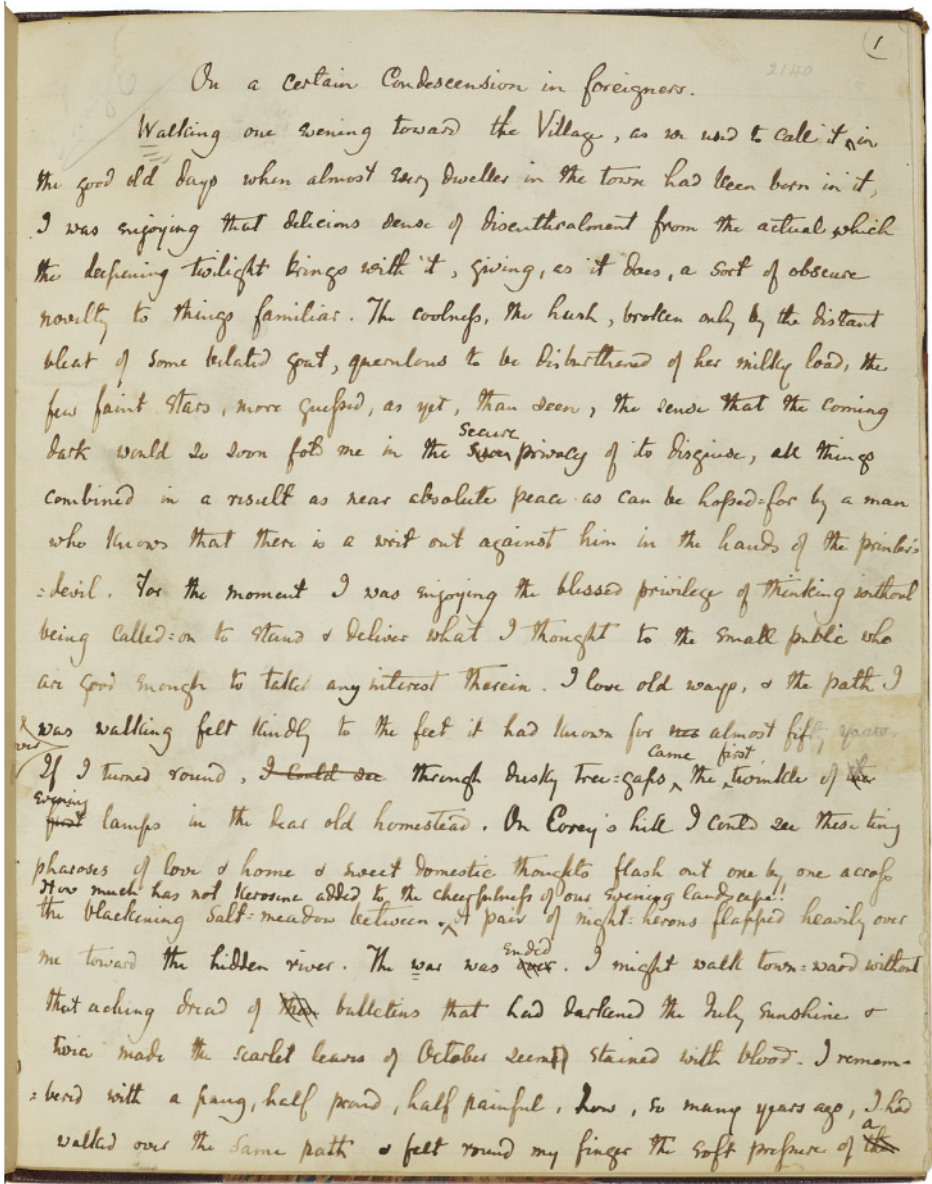 1
2140
On a certain Condescension in foreigners.
Walking one evening toward the Village, as we used to call it in
the good old days when almost every dweller in the town had been born in it,
I was enjoying that delicious sense of disenthralment from the actual which
the deepening twilight brings with it, giving, as it does, a sort of obscure
novelty to things familiar. The coolness, the hush, broken only by the distant
bleat of some belated goat, querulous to be disburthened of her milky load, the
few faint stars, more guessed, as yet, than seen, the sense that the coming
secure
dark would so soon fold me in the privacy of its disguise, all things
combined in a result as near absolute peace as can be hoped=for by a man
who knows that there is a writ out against him in the hands of the printer's
=devil. For the moment I was enjoying the blessed privilege of thinking without
being called=on to stand & deliver what I thought to the small public who
are good enough to take any interest therein. I love old ways, & the path I
was walking felt kindly to the feet it had known for almost fifty years.
over
came first
If I turned round, I could see through dusky tree=gaps, the twinkle of
evening
first lamps in the dear old homestead. On Corey's hill I could see these tiny
pharoses of love & home & sweet domestic thoughts flash out one by one across
How much has not Kerosene added to the cheerfulness of our evening landscape!!
the blackening salt=meadow between. A pair of night=herons flapped heavily over
ended
me toward the hidden river. The war was over. I might walk town=ward without
that aching dread of bulletins that had darkened the July sunshine &
twice made the scarlet leaves of October seem stained with blood. I remem-
=bered with a pang, half proud, half painful, how, so many years ago, I had
a
walked over the same path & felt round my finger the soft pressure of the